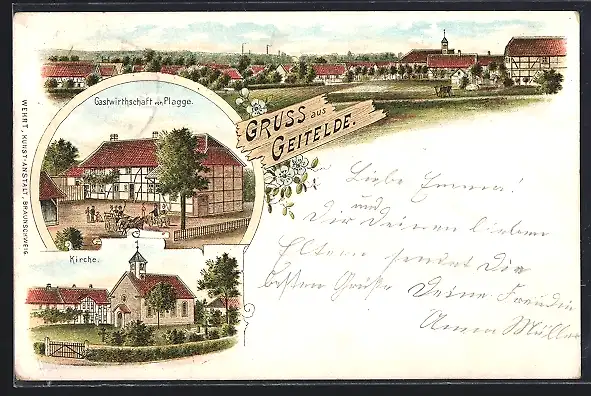 Gastwirthschaft von Plagge.
GRUSS aus
GEITELDE.
WEHRT, KUNST-ANSTALT, BRAUNSCHWEIG
Kirche.
Liebe Emma!
und
Dir Deinen lieben
Eltern sendet die
besten Grüße Deine Freundin
Anna Müller